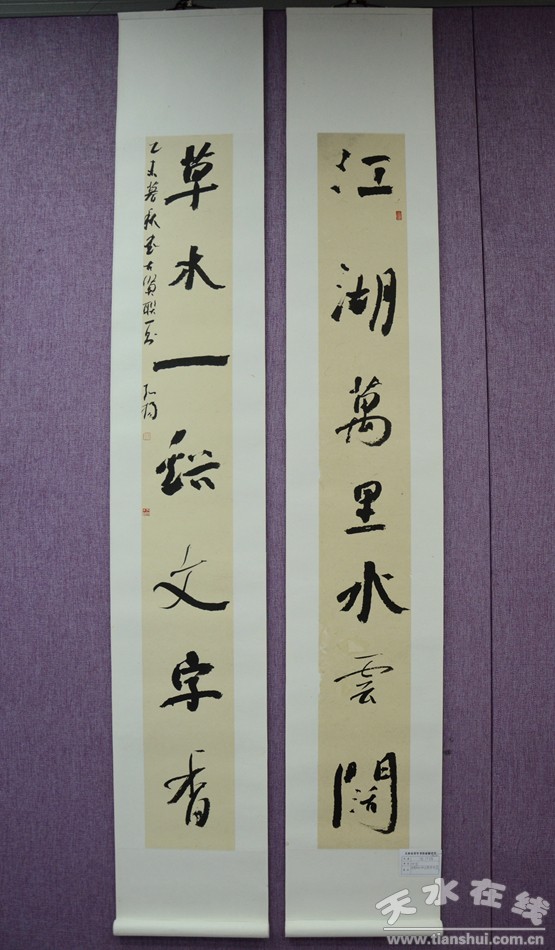 江湖萬里水雲闊
草木一谿文字香
乙未暮秋 古賢聯一
天水在线
www.tianshui.com.cn